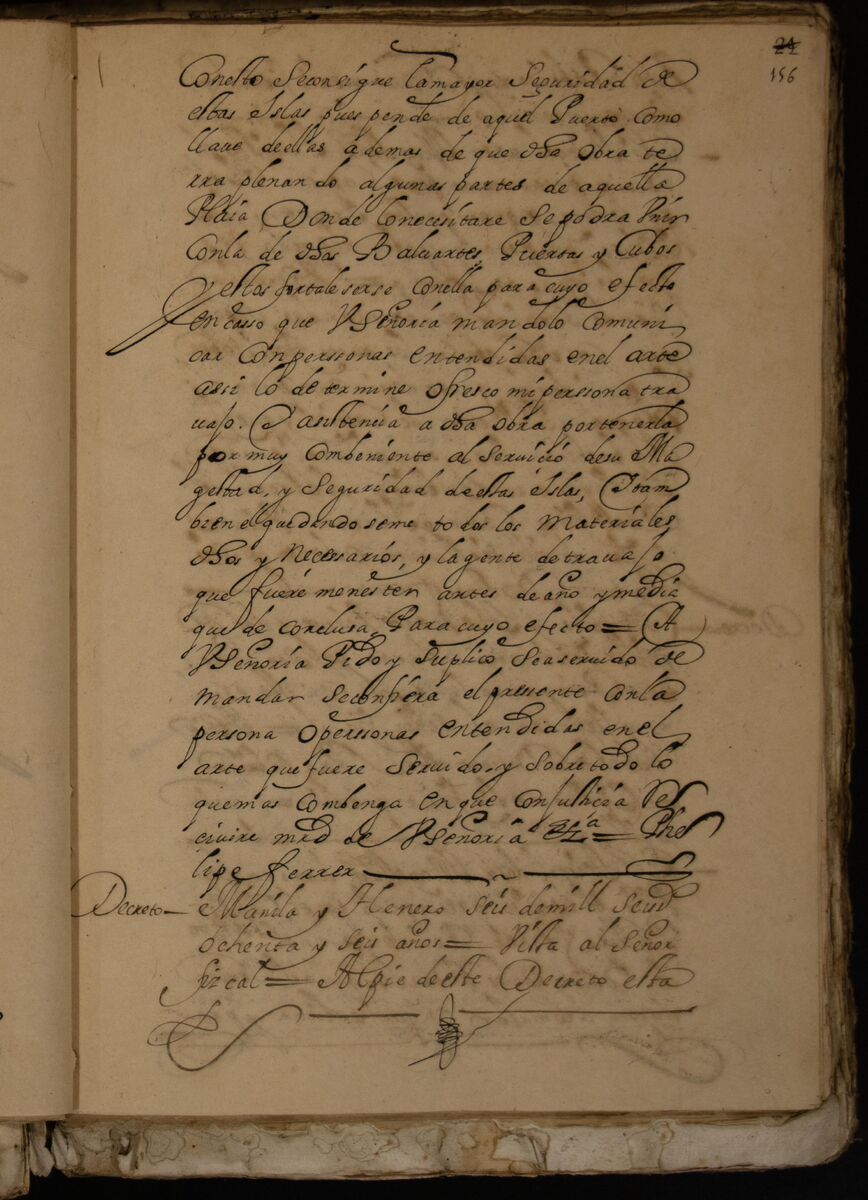 24
156
Conesto Seconsigue lamayor Seguridad de
estas Islas pues pende de aquel Puerto como
llave deellas ademas de que dha obra te
rra plenando algunas partes de aquella
Plaia Donde lo necesitare Sepodra Vnir
Conla de dhos Baluartes, Puertas y Cubos
y estos fortaleserse Conella para cuyo efecto
en casso que VSeñoria mandolo Comuni
car Con perssonas entendidas enel arte
assi lo determine ofresco mi perssona tra
uajo. Y asistencia a dha obra portenerla
por muy Combeniente al Seruicio desu Ma
gestad, y Seguridad de estas Islas, Y tam
bien el quedandoseme todos los Materiales
dhos y Necessarios, y lagente de trauajo
que fuere menester antes de año y media
que de conclusa, Para cuyo efecto = A
VSeñoria Pido y Suplico Seaseruido de
mandar Seconfiera el pressente con la
persona o perssonas entendidas en el
arte que fuere Seruido, y Sobretodo lo
quemas combenga en que Con Justicia Re
ciuire mrd de VSeñoria = Phe
lipe ferrer
Decreto — Manila y Henero seis demill Seisos
ochenta y seis años = Vista al Señor
fizcal = Al pie de este Decreto esta